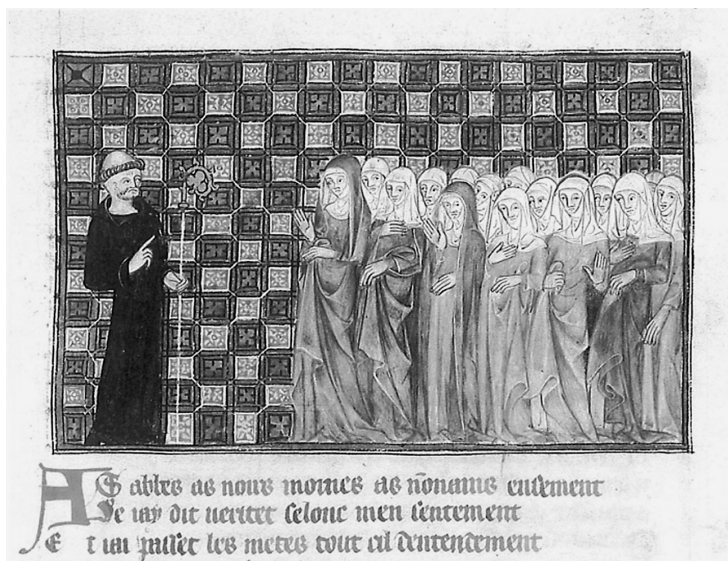 AS abbes as noirs moines as nonains ensement
Se iay dit ueritet selonc men sentement
E t iai passet les metes tout cil dentendement